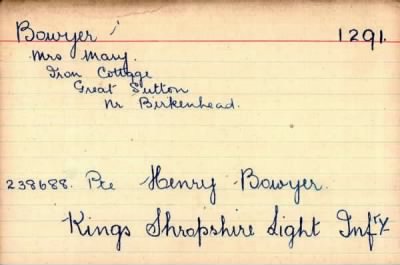 Bowyer 1291.
Mrs Mary.
Iron Cottage
Great Sutton
Nr Birkenhead.
238688. Pte Henry Bowyer.
Kings Shropshire Light Infry